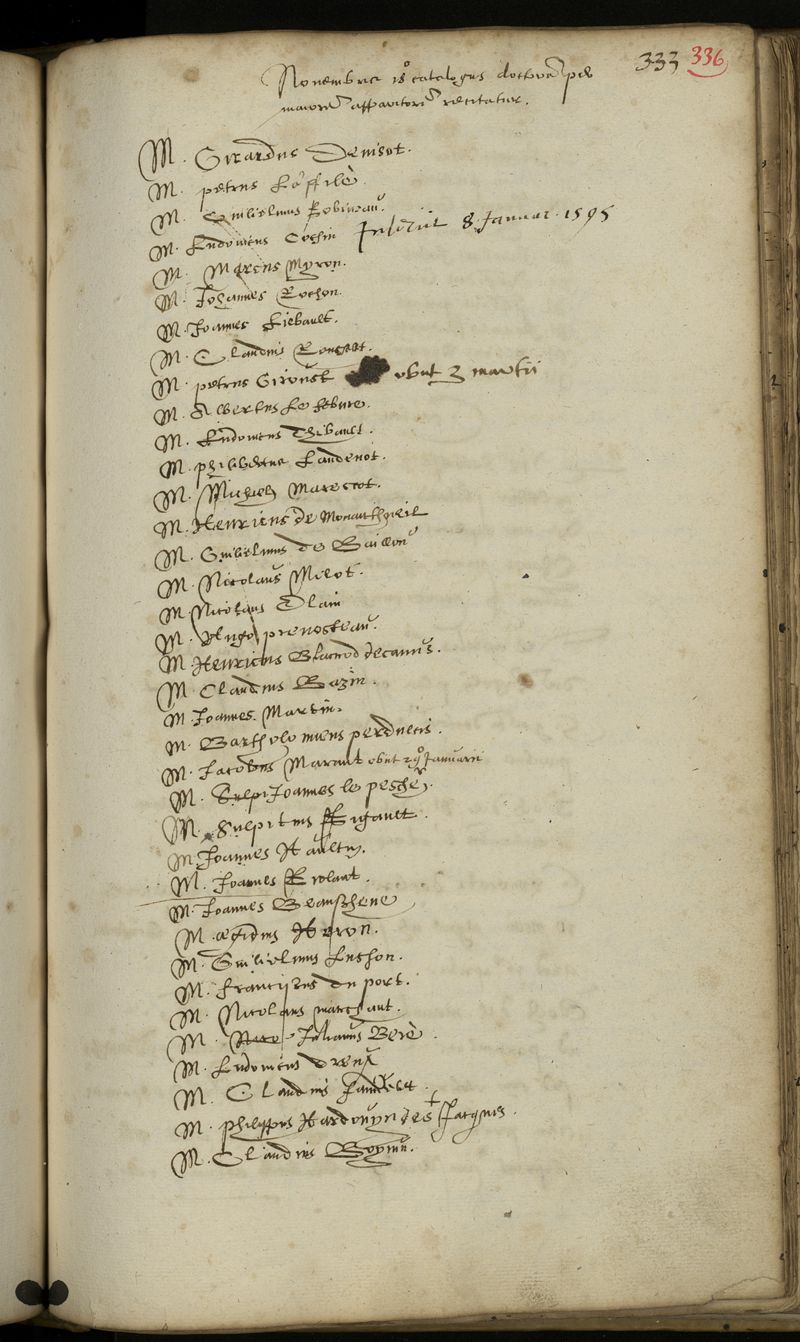 333 336
Novembris 15° catalogus doctorũ per
maiorẽ apparitorẽ recitatur.
M. Girardus Denisot.
M. petrus Laffilé
M. Guilielmus Lobineau.
M. Ludovicus Cochin Interiit 8. Januar. 1595
M. Marcus Myron.
M. Johannes Rochon.
M. Joannes Liebault.
M. Claudius Rousselet.
M. petrus Giroust obiit 3 martii
M. Albertus Le febure.
M. Ludovicus Thibault.
M. philibertus Laudenot.
M. Michael Marescot.
M. Henricus de Monantheuil
M. Guilielmus de Baillou
M. Nicolaus Milot.
M. Nicolaus Ellain
M. Hugo prenosteau.
M. Henricus Blacvod decanus.
M. Claudius Bazin.
M. Joannes Martin.
M. Bartholomeus perdulcis.
M. Jacobus Marant obiit 29° Januarii
M. Joannes le pesché.
M. Sulpitius Pigault.
M. Joannes Haultin.
M. Joannes Riolant.
M. Joannes Beauschene
M. ægidius Heron.
M. Guilielmus Lusson.
M. Franciscus du port.
M. Nicolaus marchant.
M. Julianus Beré.
M. Ludovicus dreux
M. Claudius
M. philippus Hardouyn de St Jacques.
M. Claudius